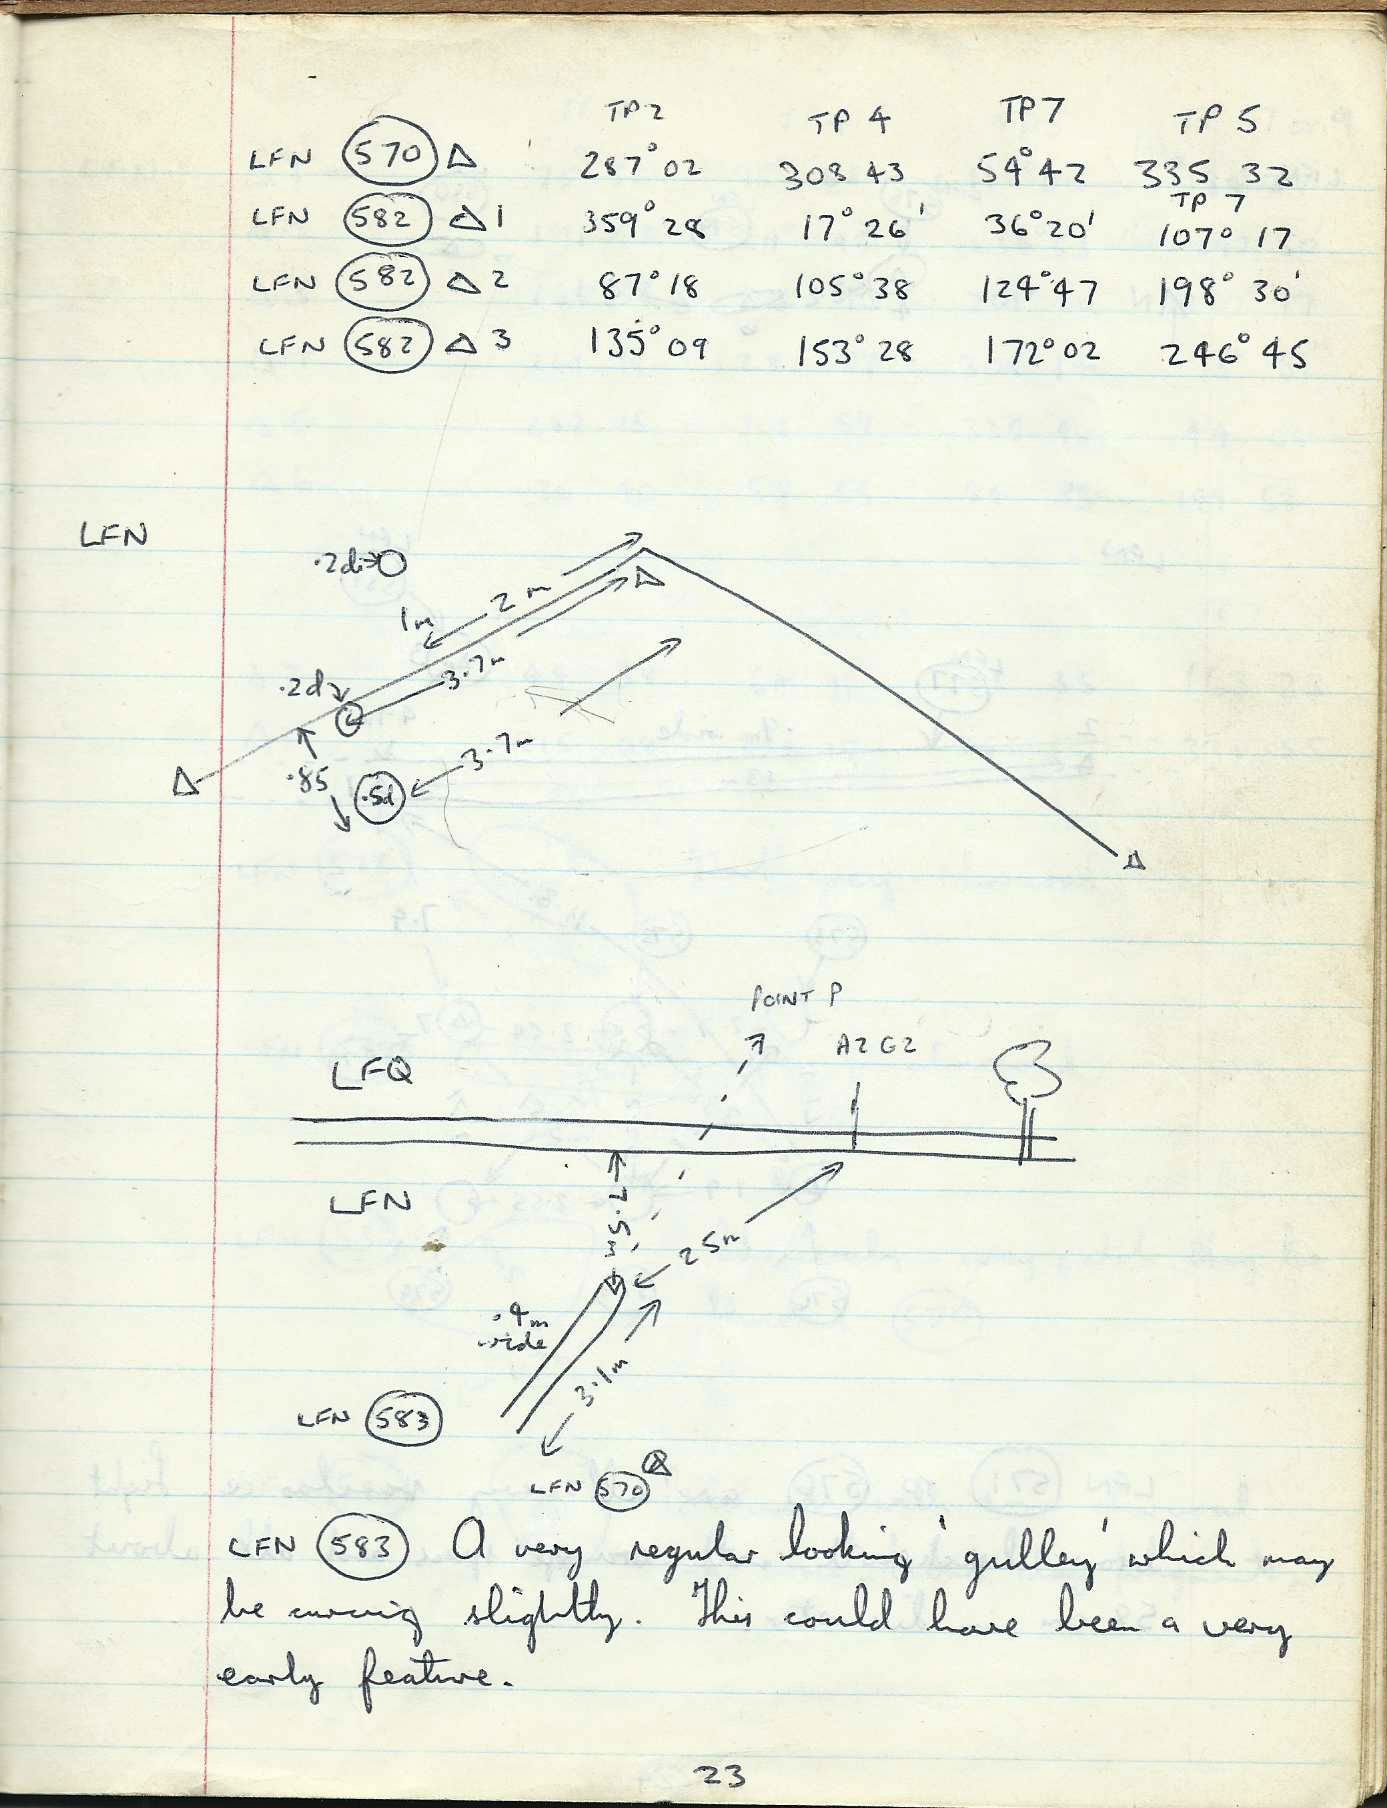 TP2 TP 4 TP7 TP 5
LFN 570 △ 287° 02 308 43 54° 42 335 32
TP 7
LFN 582 △ 1 359° 28 17° 26' 36° 20' 107° 17
LFN 582 △ 2 87° 18 105° 38 124° 47 198° 30'
LFN 582 △ 3 135° 09 153° 28 172° 02 246° 45
LFN
.2d
1m 2m
.2d 3.7m
3.7m
.85 .5d
POINT P
A2 G2
LFQ
LFN
7.5m
25m
.4m
wide
3.1m
LFN 583
LFN 570 △
LFN 583 A very regular looking 'gulley' which may
be curving slightly. This could have been a very
early feature.
23